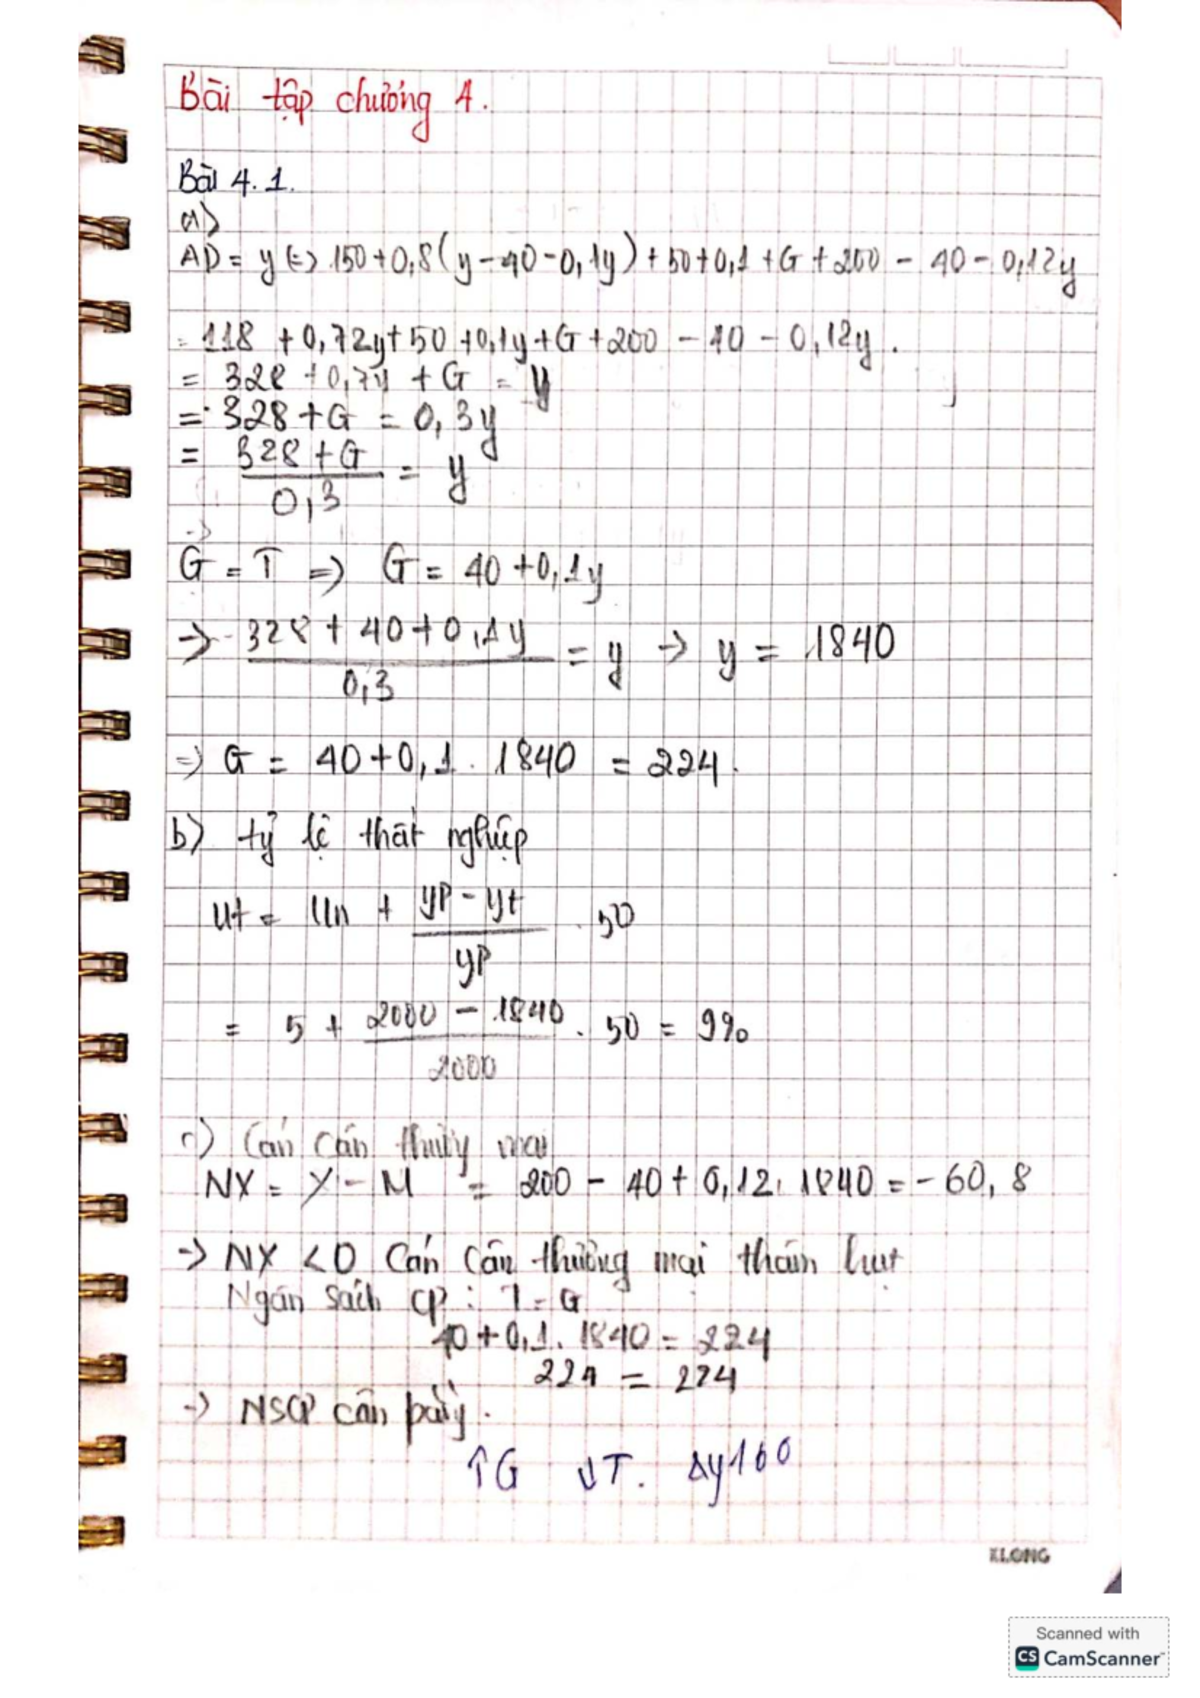 Bài tập chương 4.
Bài 4.1.
a)
AD = y (=) 150 + 0,8(y - 40 - 0,1y) + 50 + 0,1 + G + 200 - 40 - 0,12y
= 118 + 0,72y + 50 + 0,1y + G + 200 - 40 - 0,12y.
= 328 + 0,7y + G = y
= 328 + G = 0,3y
= \frac{328 + G}{0,3} = y
G = T => G = 40 + 0,1y
-> \frac{328 + 40 + 0,1y}{0,3} = y -> y = 1840
=> G = 40 + 0,1 . 1840 = 224.
b) tỷ lệ thất nghiệp
Ut = Un + \frac{yP - yt}{yP} . 50
= 5 + \frac{2000 - 1840}{2000} . 50 = 9%
c) Cán cân thương mại
NX = X - M = 200 - 40 + 0,12. 1840 = - 60,8
-> NX < 0 Cán cân thương mại thâm hụt
Ngân sách CP : T = G
40 + 0,1. 1840 = 224
224 = 224
-> NSCP cân bằng.
↑G ↓T. Δy160
KLONG
Scanned with
CS CamScanner